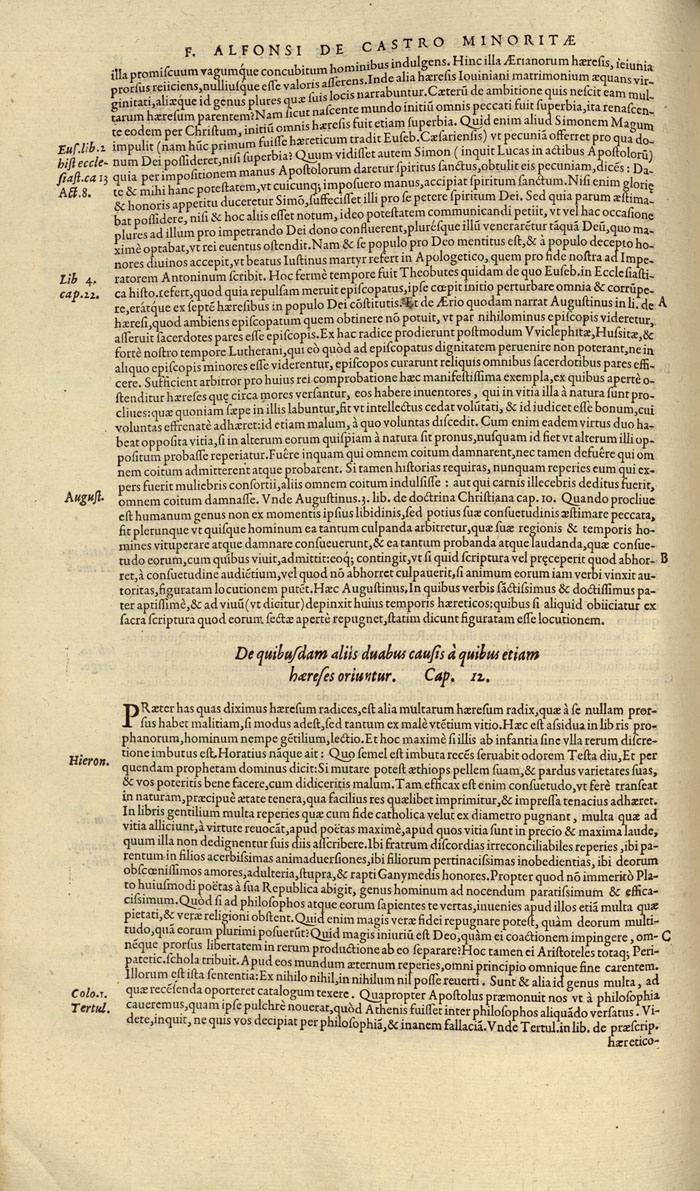 F. ALFONSI DE CASTRO MINORITÆ
illa promiscuum vagumq́ue concubitum hominibus indulgens. Hinc illa Ærianorum hæresis, ieiunia
prorsus reiiciens, nulliusque esse valoris asserens. Inde alia hæresis Iouiniani matrimonium æquans vir-
ginitati, aliæque id genus plures quæ suis locis narrabuntur. Cæterũ de ambitione quis nescit eam mul-
tarum hæresum parentem? Nam sicut nascente mundo initiũ omnis peccati fuit superbia, ita renascen-
te eodem per Christum, initiũ omnis hæresis fuit etiam superbia. Quid enim aliud Simonem Magum
Eus. lib. 2 impulit (nam hũc primum fuisse hæreticum tradit Euseb. Cæsariensis) vt pecuniã offerret pro qua do-
hist eccle- num Dei possideret, nisi superbia? Quum vidisset autem Simon ( inquit Lucas in actibus Apostolorũ)
siast. ca 13 quia per impositionem manus Apostolorum daretur spiritus sanctus, obtulit eis pecuniam, dicẽs: Da-
Act. 8. te & mihi hanc potestatem, vt cuicunq; imposuero manus, accipiat spiritum sanctum. Nisi enim glorię
& honoris appetitu duceretur Simõ, suffecisset illi pro se petere spiritum Dei. Sed quia parum æstima-
bat possidere, nisi & hoc aliis esset notum, ideo potestatem communicandi petiit, vt vel hac occasione
plures ad illum pro impetrando Dei dono confluerent, plurésque illũ venerarẽtur tãquã Deũ, quo ma-
ximè optabat, vt rei euentus ostendit. Nam & se populo pro Deo mentitus est, & à populo decepto ho-
nores diuinos accepit, vt beatus Iustinus martyr refert in Apologetico, quem pro fide nostra ad Impe-
Lib 4. ratorem Antoninum scribit. Hoc fermè tempore fuit Theobutes quidam de quo Euseb. in Ecclesiasti-
cap. 22. ca histo. refert, quod quia repulsam meruit episcopatus, ipse cœpit initio perturbare omnia & corrũpe-
re, erátque ex septẽ hæresibus in populo Dei cõstitutis. Et de Ærio quodam narrat Augustinus in li. de A
hæresi, quod ambiens episcopatum quem obtinere nõ potuit, vt par nihilominus episcopis videretur,
asseruit sacerdotes pares esse episcopis. Ex hac radice prodierunt postmodum Vviclephitæ, Hussitæ, &
fortè nostro tempore Lutherani, qui eò quòd ad episcopatus dignitatem peruenire non poterant, ne in
aliquo episcopis minores esse viderentur, episcopos curarunt reliquis omnibus sacerdotibus pares effi-
cere. Sufficient arbitror pro huius rei comprobatione hæc manifestissima exempla, ex quibus apertè o-
stenditur hæreses quę circa mores versantur, eos habere inuentores, qui in vitia illa à natura sunt pro-
cliues: quæ quoniam sæpe in illis labuntur, fit vt intellectus cedat volũtati, & id iudicet esse bonum, cui
voluntas effrenatè adhæret: id etiam malum, à quo voluntas discedit. Cum enim eadem virtus duo ha-
beat opposita vitia, si in alterum eorum quispiam à natura sit pronus, nusquam id fiet vt alterum illi op-
positum probasse reperiatur. Fuêre inquam qui omnem coitum damnarent, nec tamen defuêre qui om
nem coitum admitterent atque probarent. Si tamen historias requiras, nunquam reperies eum qui ex-
pers fuerit muliebris consortii, aliis omnem coitum indulsisse : aut qui carnis illecebris deditus fuerit,
August. omnem coitum damnasse. Vnde Augustinus. 3. lib. de doctrina Christiana cap. 10. Quando procliue
est humanum genus non ex momentis ipsius libidinis, sed potius suæ consuetudinis æstimare peccata,
fit plerunque vt quisque hominum ea tantum culpanda arbitretur, quæ suæ regionis & temporis ho-
mines vituperare atque damnare consueuerunt, & ea tantum probanda atque laudanda, quæ consue-
tudo eorum, cum quibus viuit, admittit: eoq; contingit, vt si quid scriptura vel pręceperit quod abhor- B
ret, à consuetudine audiẽtium, vel quod nõ abhorret culpauerit, si animum eorum iam verbi vinxit au-
toritas, figuratam locutionem putẽt. Hæc Augustinus, In quibus verbis sãctissimus & doctissimus pa-
ter aptissimè, & ad viuũ (vt dicitur) depinxit huius temporis hæreticos: quibus si aliquid obiiciatur ex
sacra scriptura quod eorum sectæ apertè repugnet, statim dicunt figuratam esse locutionem.
De quibusdam aliis duabus causis à quibus etiam
hæreses oriuntur. Cap. 12.
PRæter has quas diximus hæresum radices, est alia multarum hæresum radix, quæ à se nullam pror-
sus habet malitiam, si modus adest, sed tantum ex malè vtẽtium vitio. Hæc est assidua in libris pro-
phanorum, hominum nempe gẽtilium, lectio. Et hoc maximè si illis ab infantia sine vlla rerum discre-
tione imbutus est. Horatius nãque ait : Quo semel est imbuta recẽs seruabit odorem Testa diu, Et per
Hieron. quendam prophetam dominus dicit: Si mutare potest æthiops pellem suam, & pardus varietates suas,
& vos poteritis bene facere, cum didiceritis malum. Tam efficax est enim consuetudo, vt ferè transeat
in naturam, præcipuè ætate tenera, qua facilius res quælibet imprimitur, & impressa tenacius adhæret.
In libris gentilium multa reperies quæ cum fide catholica velut ex diametro pugnant, multa quæ ad
vitia alliciunt, à virtute reuocãt, apud poëtas maximè, apud quos vitia sunt in precio & maxima laude,
quum illa non dedignentur suis diis ascribere. Ibi fratrum discordias irreconciliabiles reperies, ibi pa-
rentum in filios acerbissimas animaduersiones, ibi filiorum pertinacissimas inobedientias, ibi deorum
obscœnissimos amores, adulteria, stupra, & rapti Ganymedis honores. Propter quod nõ immeritò Pla-
to huiusmodi poëtas à sua Republica abigit, genus hominum ad nocendum paratissimum & effica-
cissimum. Quòd si ad philosophos atque eorum sapientes te vertas, inuenies apud illos etiã multa quæ
pietati, & veræ religioni obstent. Quid enim magis veræ fidei repugnare potest, quàm deorum multi-
tudo, quã eorum plurimi posuerũt? Quid magis iniuriũ est Deo, quàm ei coactionem impingere, om- C
néque prorsus libertatem in rerum productione ab eo separare? Hoc tamen ei Aristoteles totaq; Peri-
patetic. schola tribuit. Apud eos mundum æternum reperies, omni principio omnique fine carentem.
Illorum est ista sententia: Ex nihilo nihil, in nihilum nil posse reuerti. Sunt & alia id genus multa, ad
Colo. 1. quæ recẽsenda oporteret catalogum texere. Quapropter Apostolus præmonuit nos vt à philosophia
Tertul. caueremus, quam ipse pulchrè nouerat, quòd Athenis fuisset inter philosophos aliquãdo versatus. Vi-
dete, inquit, ne quis vos decipiat per philosophiã, & inanem fallaciã. Vnde Tertul. in lib. de præscrip.
hæretico-